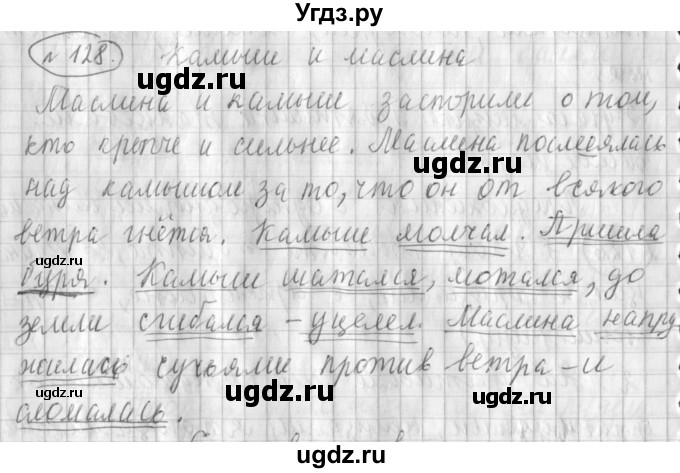 Угдз.ру
№ 128. Камыш и маслина
Маслина и камыш заспорили о том,
кто крепче и сильнее. Маслина посмеялась
над камышом за то, что он от всякого
ветра гнётся. Камыш молчал. Пришла
буря. Камыш шатался, мотался, до
земли сгибался - уцелел. Маслина напру
жилась сучьями против ветра - и
сломалась.
ugdz.ru
ugdz.ru
ugdz.ru
ugdz.ru
ugdz.ru
ugdz.ru
ugdz.ru
ugdz.ru
ugdz.ru
ugdz.ru